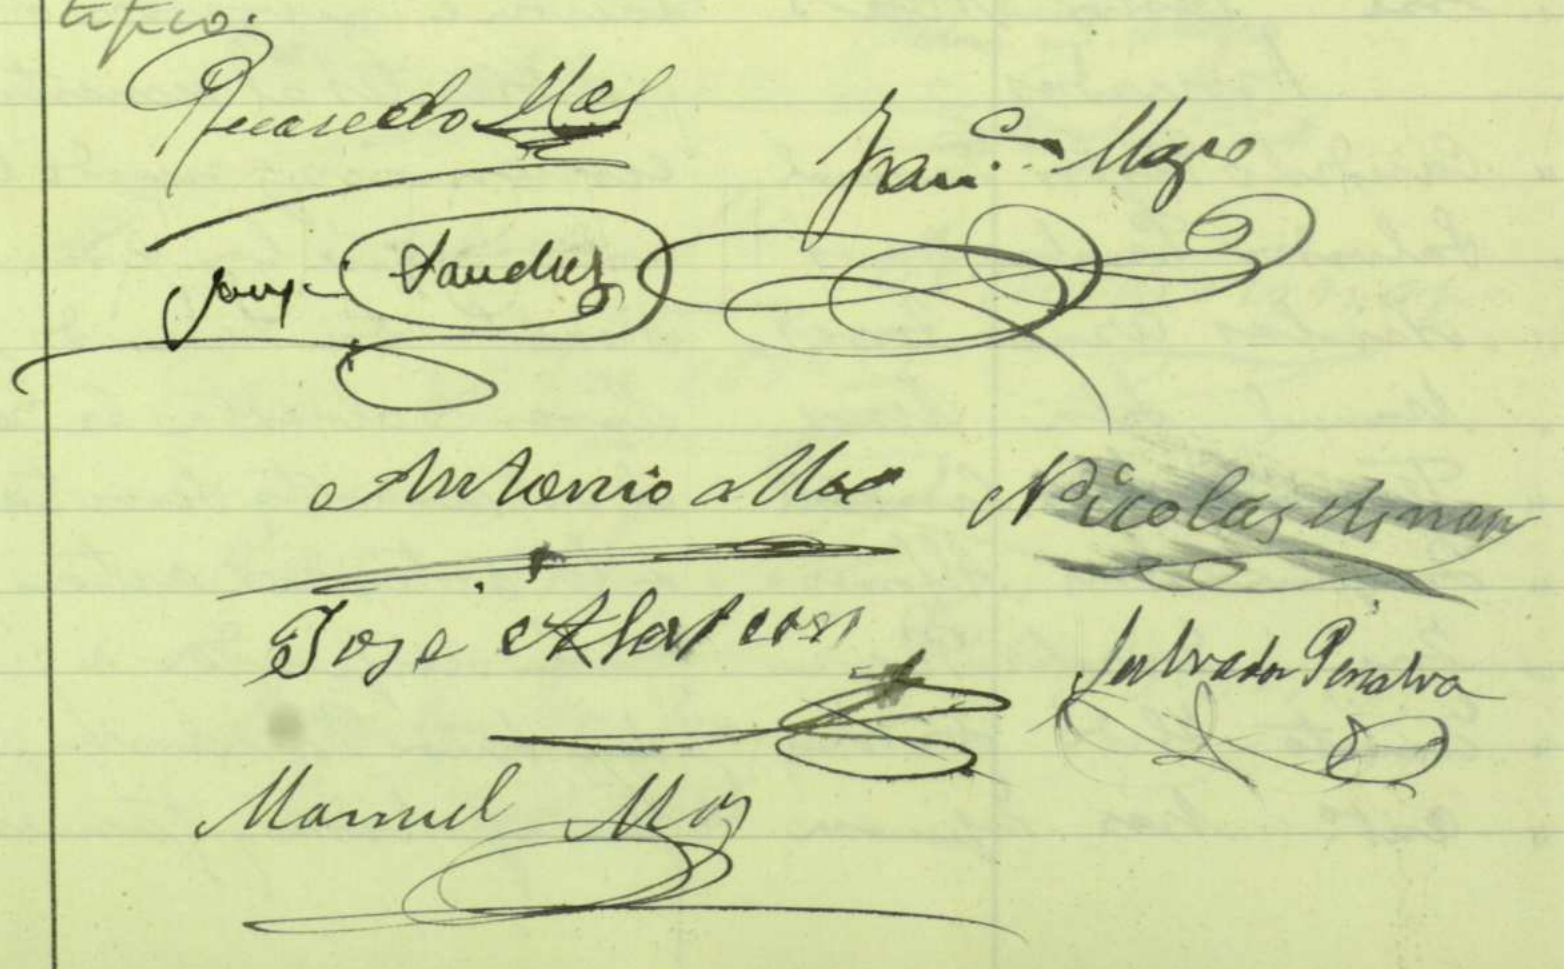 tifico.
Recaredo Mas
Franco Magro
Sanchez
Antonio Mas
Nicolas
José Alarcon
Salvador Penalva
Manuel Mas